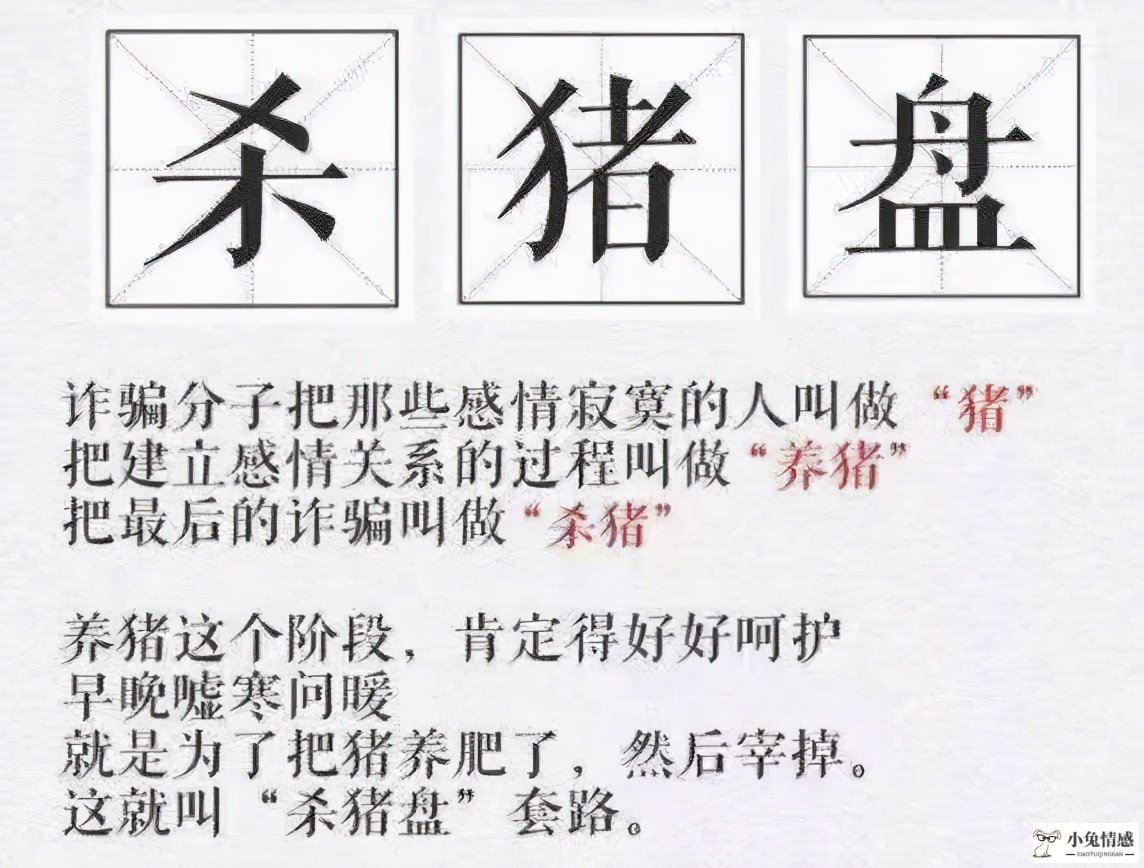 杀猪盘
诈骗分子把那些感情寂寞的人叫做“猪”
把建立感情关系的过程叫做“养猪”
把最后的诈骗叫做“杀猪”
养猪这个阶段，肯定得好好呵护
早晚嘘寒问暖
就是为了把猪养肥了，然后宰掉。
这就叫“杀猪盘”套路。
小兔情感
XIAOTUQINGGAN